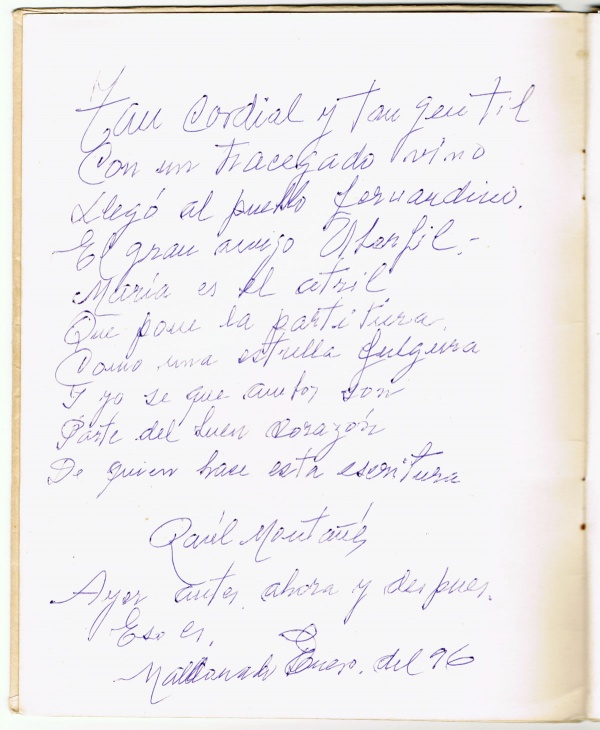 Tan cordial y tan gentil
Con un tracegado vino
Llegó al pueblo fernandino.
El gran amigo Abenfil.-
María es el atril
Que pone la partitura,
Como una estrella fulgura
Y yo se que ambos son
Parte del buen corazón
De quien hase esta escritura
Raúl Montañés
Ayer antes, ahora y despues.
Eso es.
Maldonado Enero, del 96